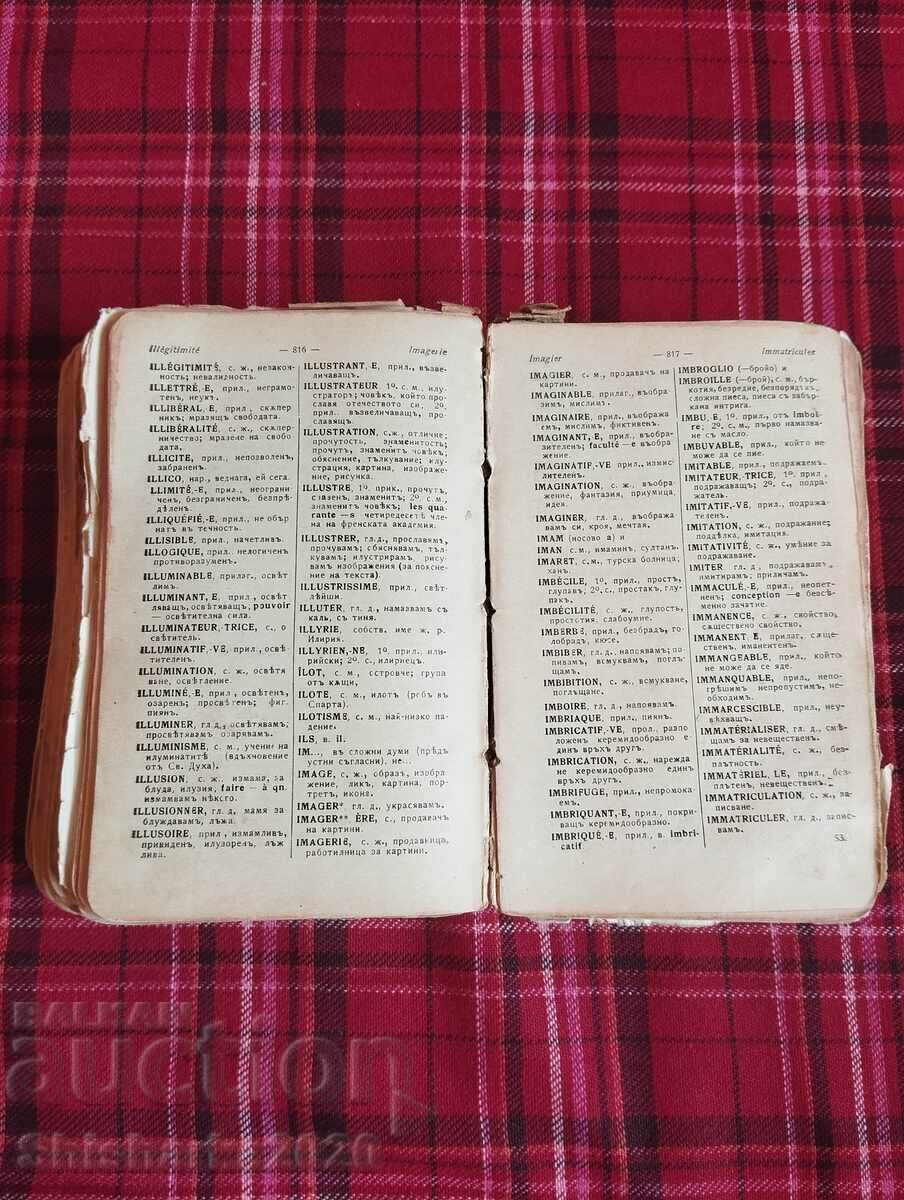 Illégitimité — 816 — Imagerie
ILLÉGITIMITÉ, с. ж., незакон-
ность; невалирность.
ILLETTRÉ, E, прил., неграмо-
тенъ, неукъ.
ILLIBÉRAL, E, прил., скѫпер-
никъ; мразящъ свободата.
ILLIBÉRALITÉ, с. ж., скѫпер-
ничество; мразене на свобо
дата.
ILLICITE, прил., непозволенъ,
забраненъ.
ILLICO, нар., веднага, ей сега.
ILLIMITÉ,-E, прил., неограни-
ченъ, безграниченъ, безпрѣ-
дѣленъ.
ILLIQUÉFIÉ,-E, прил., не обър
натъ въ течность.
ILLISIBLE, прил., начетливъ.
ILLOGIQUE, прил. нелогиченъ
противоразуменъ.
ILLUMINABLE, прилаг., освѣт
лимъ.
ILLUMINANT, E, прил., освѣт
ляващъ, освѣтяващъ, pouvoir
— освѣтителна сила.
ILLUMINATEUR, TRICE, с., о
свѣтитель.
ILLUMINATIF,-VE, прил., освѣ-
тителенъ.
ILLUMINATION, с. ж., освѣтя
ване, освѣтление.
ILLUMINÉ,-E, прил., освѣтенъ,
озаренъ; просвѣтенъ; фиг.
пиянъ.
ILLUMINER, гл д., освѣтявамъ;
просвѣтявамъ озарявамъ.
ILLUMINISME, с. м., учение на
илуминатитѣ (вдъхновение
отъ Св. Духа).
ILLUSION, с. ж., измама, за
блуда, илузия, faire — à qn.
измамвамъ нѣкого.
ILLUSIONNER, гл, д, мамя за
блуждавамъ, лъжа.
ILLUSOIRE, прил, измамливъ,
привиденъ, илузоренъ, лъж
лива.
ILLUSTRANT, E, прил., възве-
личаващъ.
ILLUSTRATEUR 1º. с. м., илу-
страторъ; човѣкъ, който про-
славя отечеството си, 2º.
прил. възвеличавацъ, про-
славящъ.
ILLUSTRATION, с.ж., отличие;
прочутость, знаменитость;
прочутъ, знаменитъ човѣкъ;
обяснение, тълкувание; илу-
страция, картина, изображе-
ние, рисунка.
ILLUSTRE, 1º. прик., прочутъ,
славенъ, знаменитъ; 2º. с. м.,
знаменитъ човѣкъ; les qua-
rante —s четиредесетѣ чле-
на на френската академия.
ILLUSTRER, гл. д., прославямъ,
прочувамъ; обяснявамъ, тъл-
кувамъ; илюстрирамъ, рису-
вамъ изображения (за поясне-
ние на текста).
ILLUSTRISSIME, прил., свѣт-
лѣйши.
ILLUTER, гл. д., намазвамъ съ
калъ, съ тиня.
ILLYRIE, собств. име ж, р.
Илирия.
ILLYRIEN,-NE, 1º. прил., или-
рийски; 2º. с., илириецъ.
ÎLOT, с. м., островче; група
отъ кѫщи,
ILOTE, с. м., илотъ (робъ въ
Спарта).
ILOTISME, с. м., най-низко па-
дение.
ILS, в. il.
IM..., въ сложни думи (прѣдъ
устни съгласни), не...
IMAGE, с, ж, образъ, изобра
жение, ликъ, картина, пор-
третъ, икона.
IMAGER* гл. д., украсявамъ.
IMAGER** ÈRE, с., продавачъ
на картини.
IMAGERIE, с. ж., продавница,
работилница за картини.
Imagier — 817 — Immatriculer
IMAGIER, с. м., продавачъ на
картини.
IMAGINABLE, прилаг., въобра-
зимъ, мислимъ.
IMAGINAIRE, прил., въобража-
емъ, мислимъ, фиктивенъ.
IMAGINANT, E, прил., въобра-
зителенъ; faculté —e въобра-
жение.
IMAGINATIF,-VE прил., измис-
лителенъ.
IMAGINATION, с. ж., въобра-
жение, фантазия, приумица,
идея.
IMAGINER, гл. д., въобража-
вамъ си, кроя, мечтая,
IMAM (носово а) и
IMAN с. м., имаминъ, султанъ.
IMARET, с. м., турска болница;
ханъ.
IMBÉCILE, 1º, прил., простъ,
глупавъ; 2º. с., простакъ, глу-
пакъ.
IMBÉCILITÉ, с. ж., глупость,
простотия, слабоумие.
IMBERBE, прил., безбрадъ, го-
лобрадъ, кюсе.
IMBIBER гл. д., напоявамъ; по-
пивамъ, всмуквамъ, поглъ-
щамъ.
IMBIBITION, с. ж., всмукване,
поглъщане.
IMBOIRE, гл. д., напоявамъ.
IMBRIAQUE, прил., пиянъ.
IMBRICATIF,-VE, прол., разпо-
ложенъ керемидообразно е
динъ връхъ другъ.
IMBRICATION, с. ж., нарежда
не керемидообразно единъ
връхъ другъ.
IMBRIFUGE, прил., непромока-
емъ.
IMBRIQUANT,-E, прил., покри-
ващъ керемидообразно.
IMBRIQUÉ,-E, прил., в. imbri-
catif.
IMBROGLIO (—бройо) и
IMBROILLE (—бройо), с. м., бър-
котия, безредие, безпорядъкъ;
сложна пиеса, пиеса съ забър-
кана интрига.
IMBU, E, 1º. прил., отъ imboi-
re; 2º. с. м., първо намазва-
не съ масло.
IMBUVABLE, прил., който не-
може да се пие.
IMITABLE, прил., подражаемъ.
IMITATEUR, TRICE, 1º. прил,
подражаващъ; 2º. с., подра-
жатель.
IMITATIF,-VE, прил., подража-
теленъ.
IMITATION, с. ж., подражание;
поддѣлка, имитация.
IMITATIVITÉ, с. ж., умѣние за
подражание.
IMITER гл. д., подражавамъ,
имитирамъ; приличамъ.
IMMACULÉ, E, прил., неопет-
ненъ; conception —e безсѣ-
менно зачатие.
IMMANENCE, с. ж., свойство,
сѫществено свойство.
IMMANENT E, прилаг, сѫще-
ственъ, иманентенъ.
IMMANGEABLE, прил., който
не може да се яде.
IMMANQUABLE, прил., непо-
грѣшимъ непропустимъ, не-
обходимъ.
IMMARCESCIBLE, прил., неу-
вѣхващъ.
IMMATÉRIALISER, гл. д., смѣ-
щамъ за невещественъ.
IMMATÉRIALITÉ, с. ж., без-
плътность.
IMMATÉRIEL, LE, прил., без-
плътенъ, невещественъ.
IMMATRICULATION, с. ж., за-
писване.
IMMATRICULER, гл. д., записвамъ.
53.
BALKAN
auction
Shisharka2020